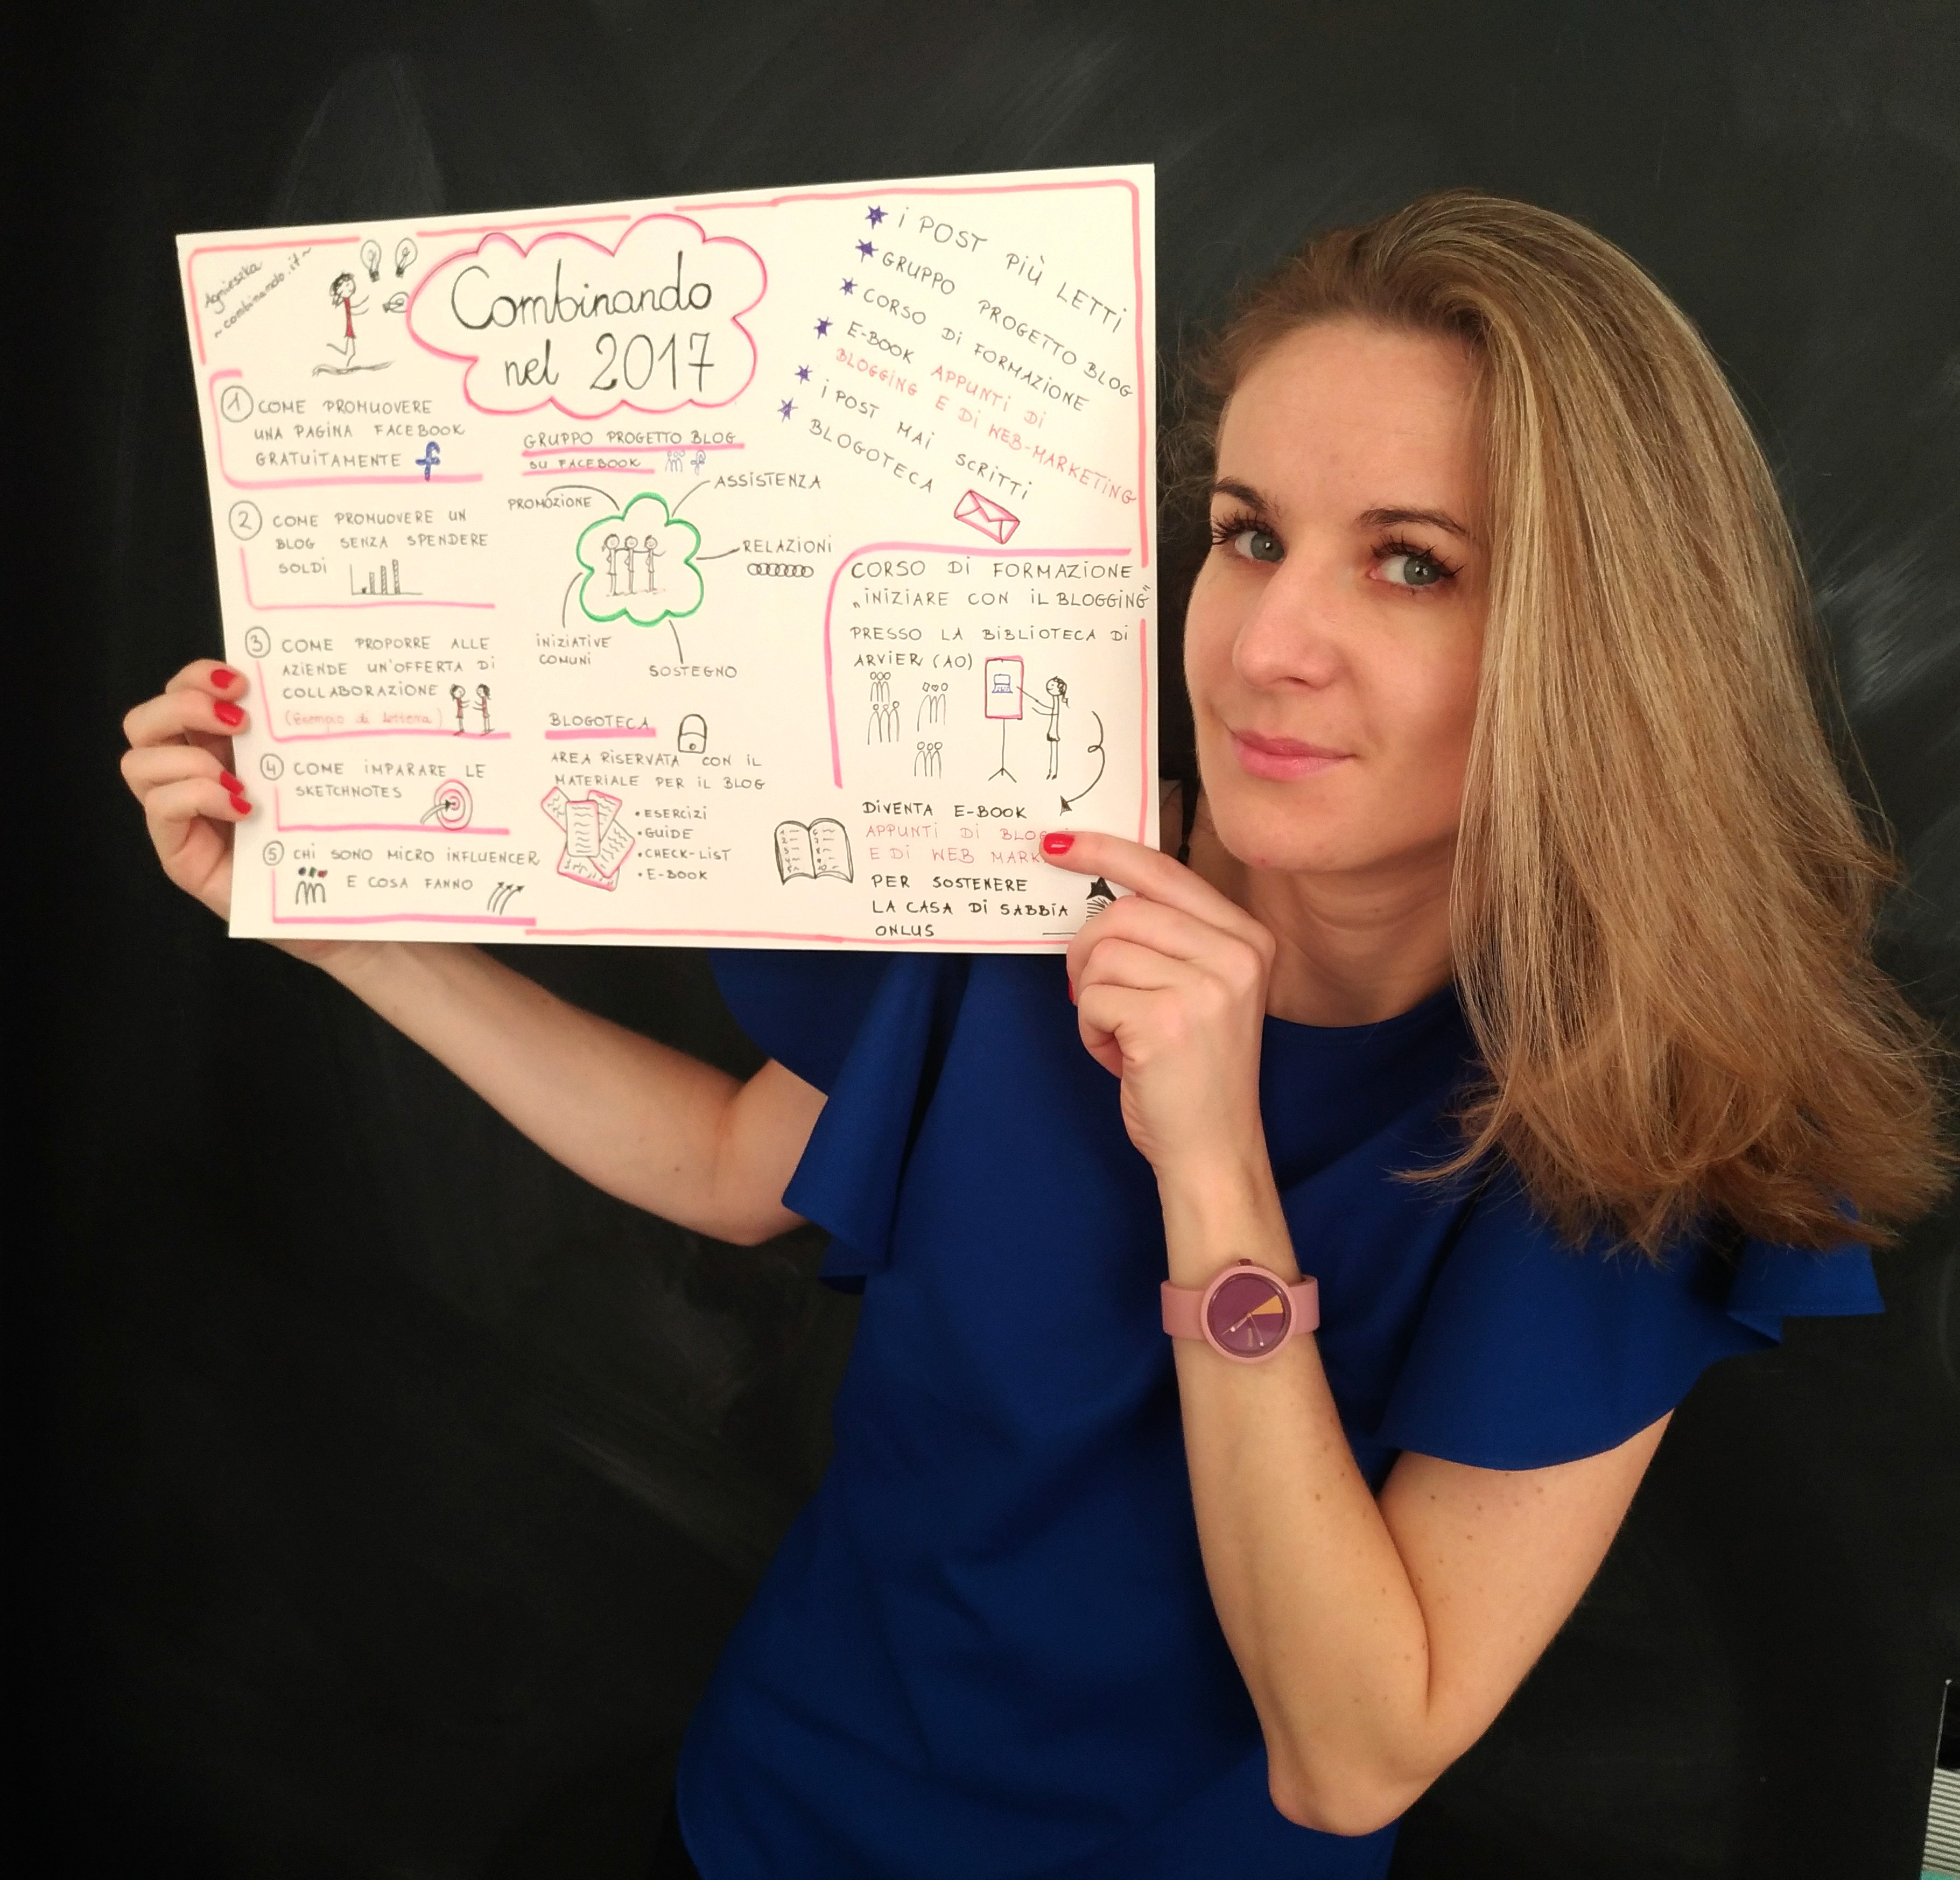 Agnieszka
~combinando.it~
Combinando
nel 2017
i POST PIÙ LETTI
GRUPPO PROGETTO BLOG
CORSO Di FORMAZIONE
E-BOOK APPUNTI Di
BLOGGING E Di WEB-MARKETING
i POST MAi SCRITTI
BLOGOTECA
1 COME PROMUOVERE
UNA PAGINA FACEBOOK
GRATUITAMENTE f
2 COME PROMUOVERE UN
BLOG SENZA SPENDERE
SOLDI
3 COME PROPORRE ALLE
AZIENDE UN'OFFERTA Di
COLLABORAZIONE
(Esempio di lettera)
4 COME iMPARARE LE
SKETCHNOTES
5 CHi SONO MICRO iNFLUENCER
E COSA FANNO
GRUPPO PROGETTO BLOG
SU FACEBOOK f
PROMOZIONE
ASSISTENZA
RELAZIONI
INIZIATIVE
COMUNI
SOSTEGNO
BLOGOTECA
AREA RISERVATA CON iL
MATERIALE PER iL BLOG
• ESERCIZI
• GUIDE
• CHECK-LIST
• E-BOOK
CORSO Di FORMAZIONE
„iNIZIARE CON iL BLOGGING"
PRESSO LA BIBLIOTECA Di
ARVIER (AO)
DIVENTA E-BOOK
APPUNTI Di
E Di WEB
PER SOSTENERE
LA CASA Di SABBIA
ONLUS